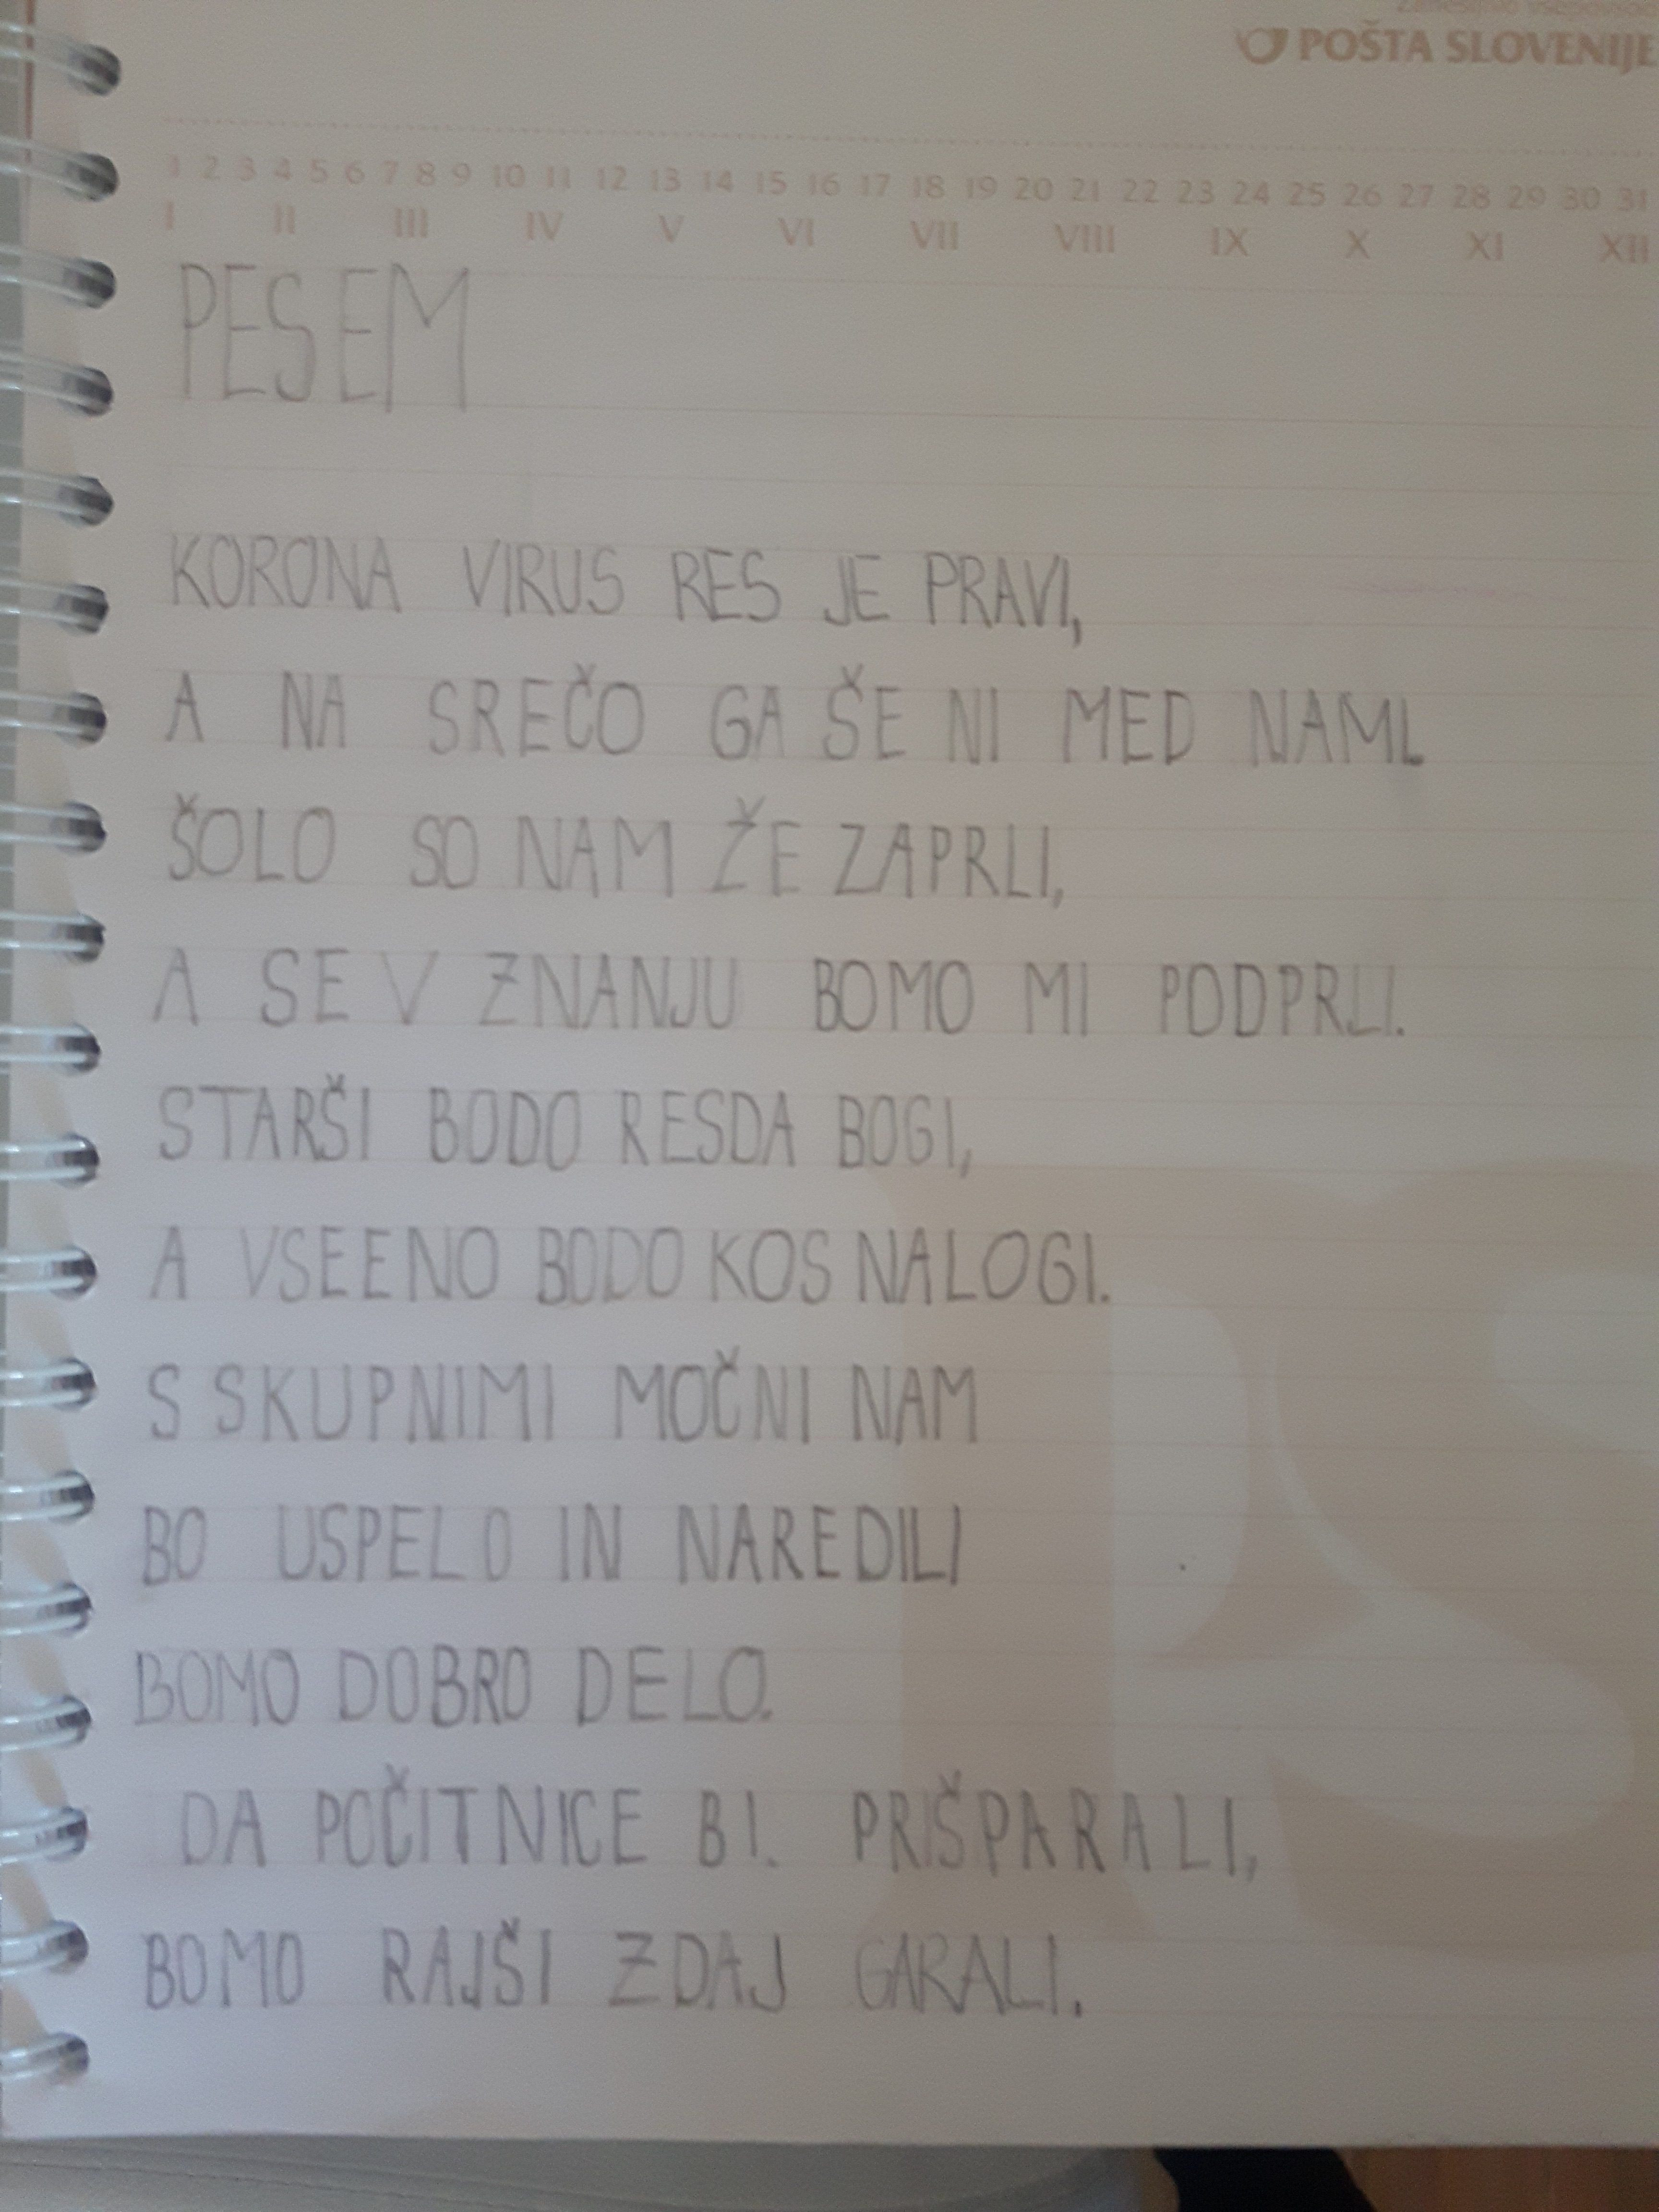 POŠTA SLOVENIJE
1 2 3 4 5 6 7 8 9 10 11 12 13 14 15 16 17 18 19 20 21 22 23 24 25 26 27 28 29 30 31
I II III IV V VI VII VIII IX X XI XII
PESEM
KORONA VIRUS RES JE PRAVI,
A NA SREČO GA ŠE NI MED NAMI.
ŠOLO SO NAM ŽE ZAPRLI,
A SE V ZNANJU BOMO MI PODPRLI.
STARŠI BODO RESDA BOGI,
A VSEENO BODO KOS NALOGI.
S SKUPNIMI MOČNI NAM
BO USPELO IN NAREDILI
BOMO DOBRO DELO.
DA POČITNICE BI. PRIŠPARALI,
BOMO RAJŠI ZDAJ GARALI.